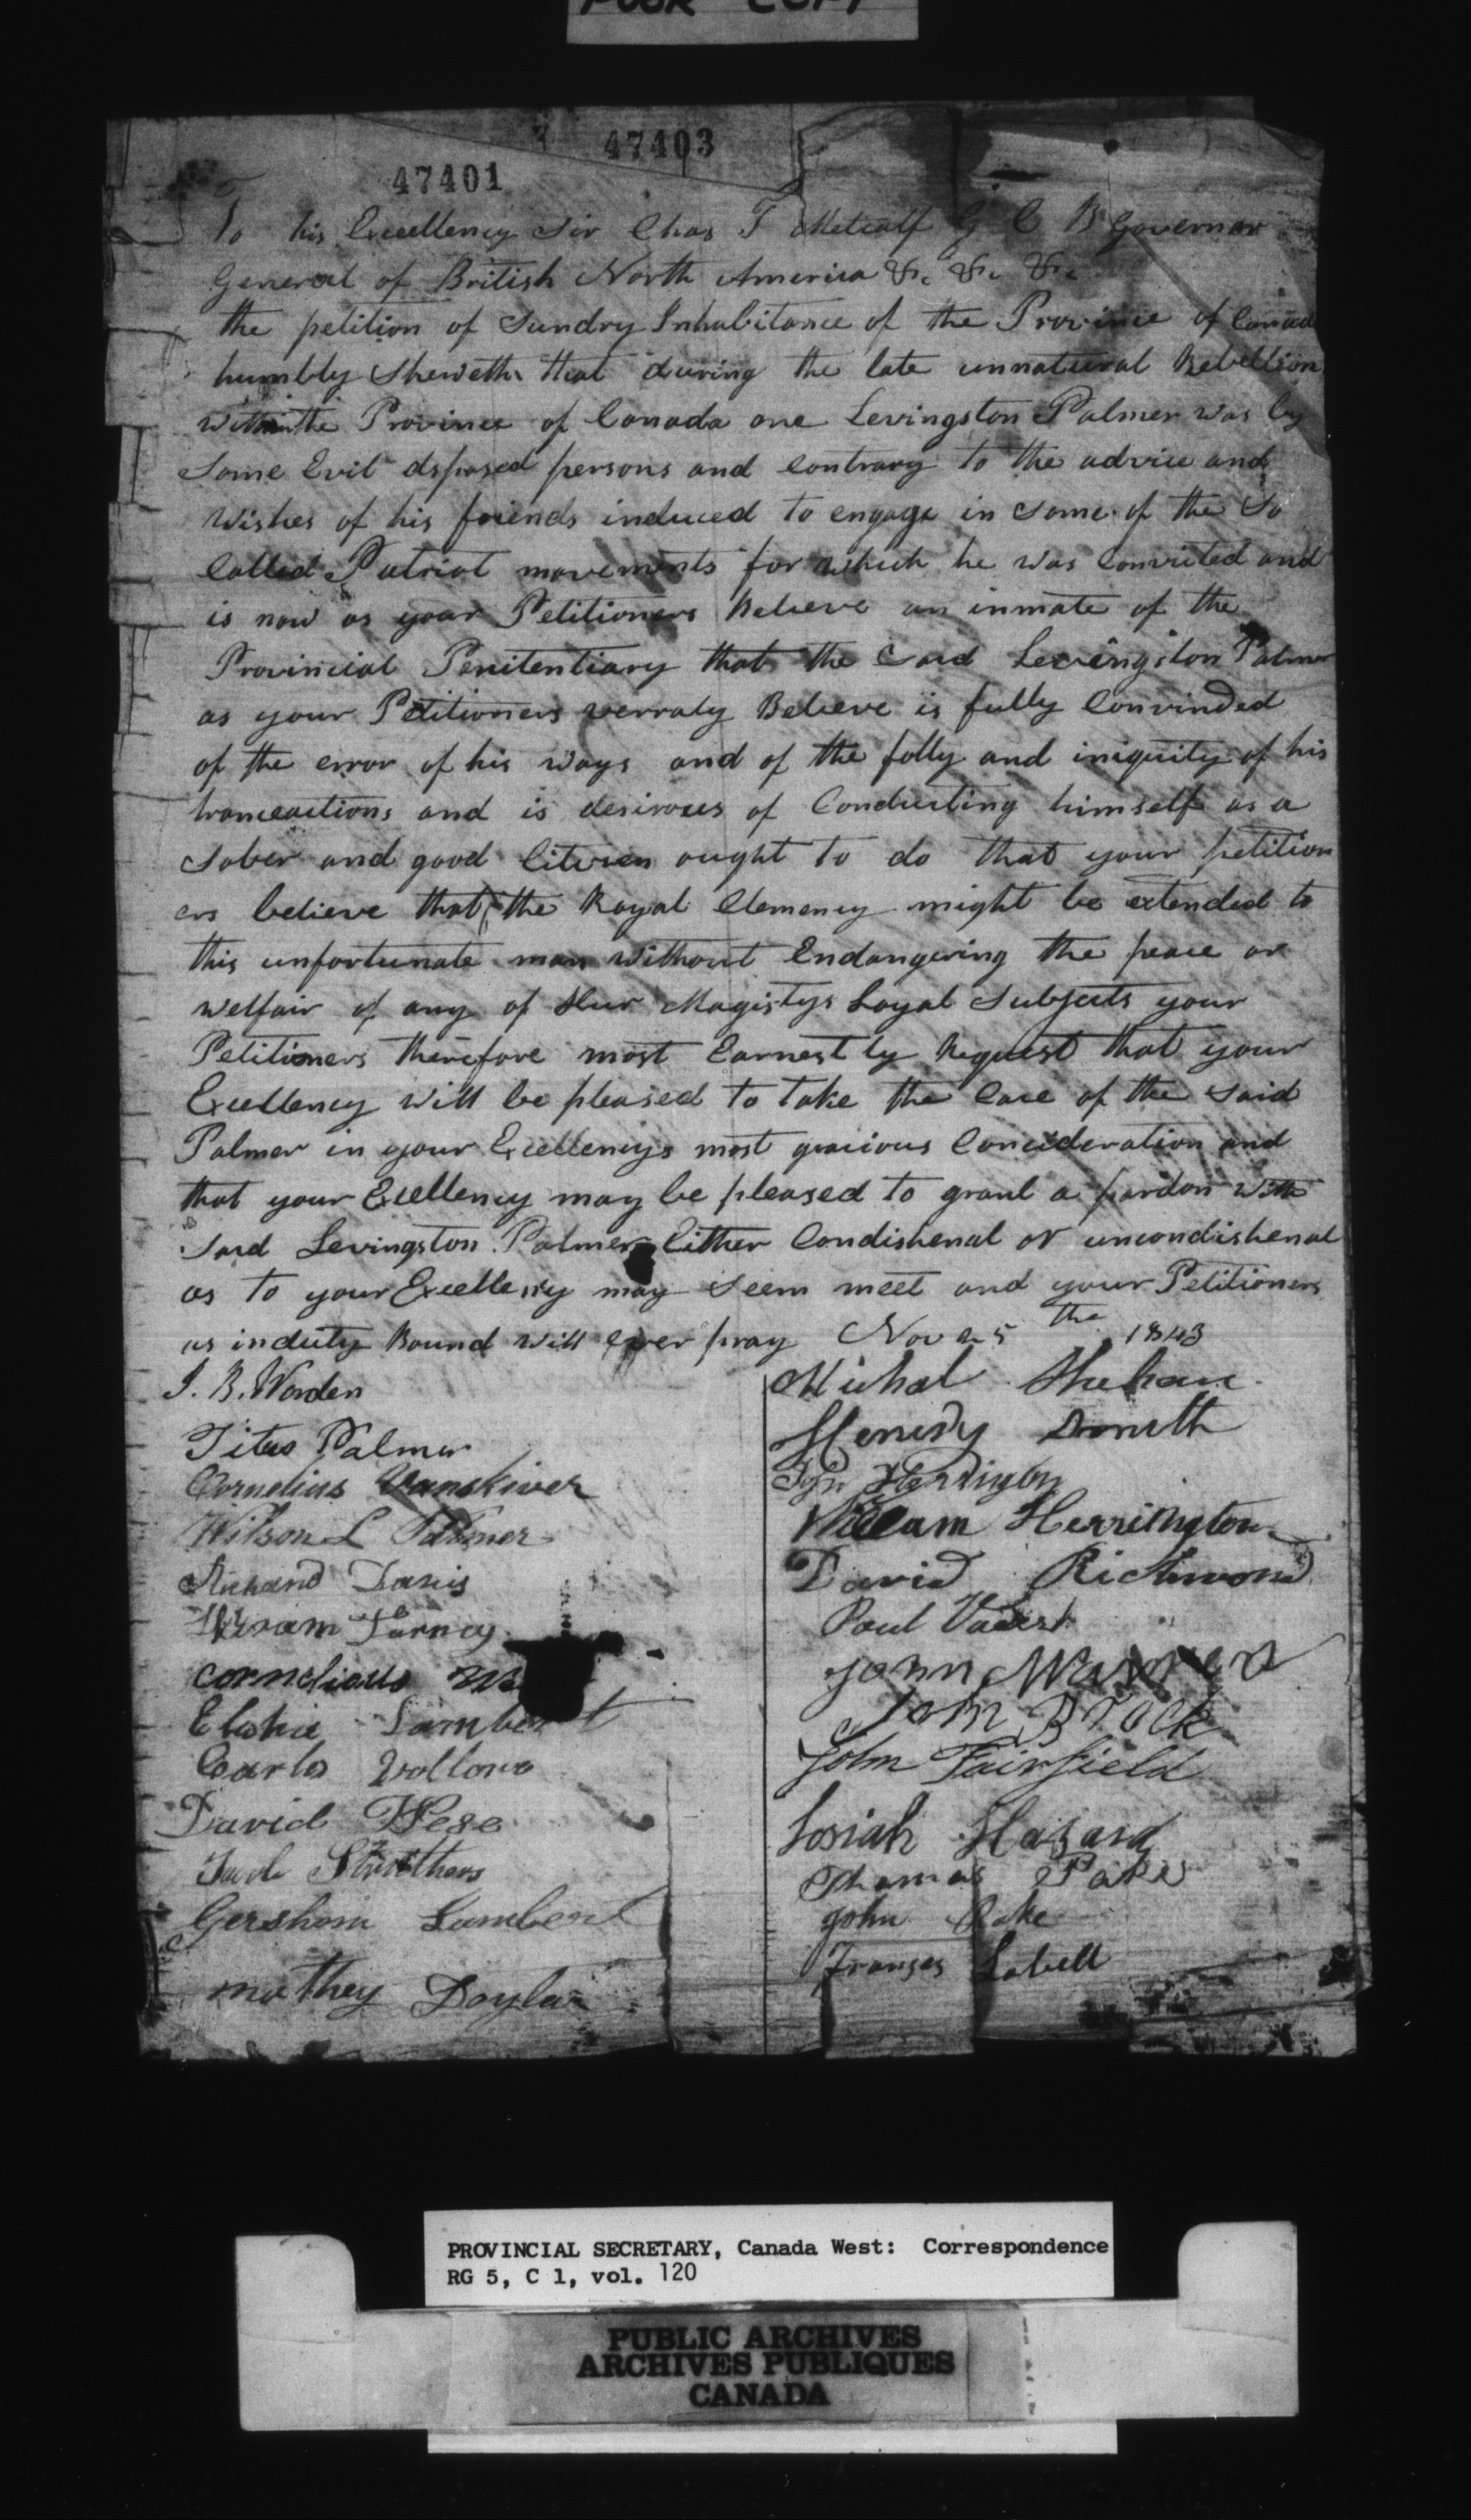 POOR COPY
47403
47401
To his Excellency Sir Chas T Metcalf G C B Governor
General of British North America &c &c &c
the petition of Sundry Inhabitance of the Province of Canad
humbly Sheweth that during the late unnatural Rebellion
within the Province of Canada one Levingston Palmer was by
Some Evil dsposed persons and contrary to the advice and
Wishes of his friends induced to engage in some of the So
Called Patriot movements for which he was Convicted and
is now as your Petitioners Believe an inmate of the
Provincial Penitentiary that the Said Levingston Palmer
as your Petitioners verraly Believe is fully Convinded
of the error of his ways and of the folly and iniquity of his
tranceactions and is desirous of Conducting himself as a
Sober and good Citizen ought to do that your petition
ers believe that the Royal Clemency might be extended to
this unfortunate man without Endangering the peace or
welfair of any of Hur Magistys Loyal Subjects your
Petitioners therefore most Earnestly Request that your
Excellency will be pleased to take the Case of the Said
Palmer in your Excellencys most gracious Concideration and
that your Exellency may be pleased to grant a pardon with
Said Levingston Palmer Either Condishenal or uncondishenal
as to your Excellency may seem meet and your Petitioners
as induty Bound will ever pray Nov 25 the 1843
J. B. Worden
Titus Palmer
Cornelius Vanskiver
Wilson L Palmer
Richard Davis
Hiram
cornelious
Elisha Lambert
Carlo
David Wese
Struthers
Gershom Lambert
mathey Doyla
Michal Shehane
Henery Smith
Herrington
William Herrington
David Richmond
Paul
John Warner
John Brock
John Fairfield
Josiah Hazard
Thomas Pake
John Pake
Franses Labell
PROVINCIAL SECRETARY, Canada West: Correspondence
RG 5, C 1, vol. 120
PUBLIC ARCHIVES
ARCHIVES PUBLIQUES
CANADA